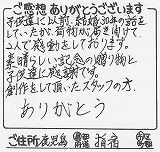 ご感想 ありがとうございます
子供達に以前、結婚30年の話をし
ていたが、荷物が届き開けて、
2人で感動をしております。
素晴らしい記念の贈り物と
子供達に感謝です。
創作をして頂いたスタッフの方、
ありがとう
ご住所 鹿児島